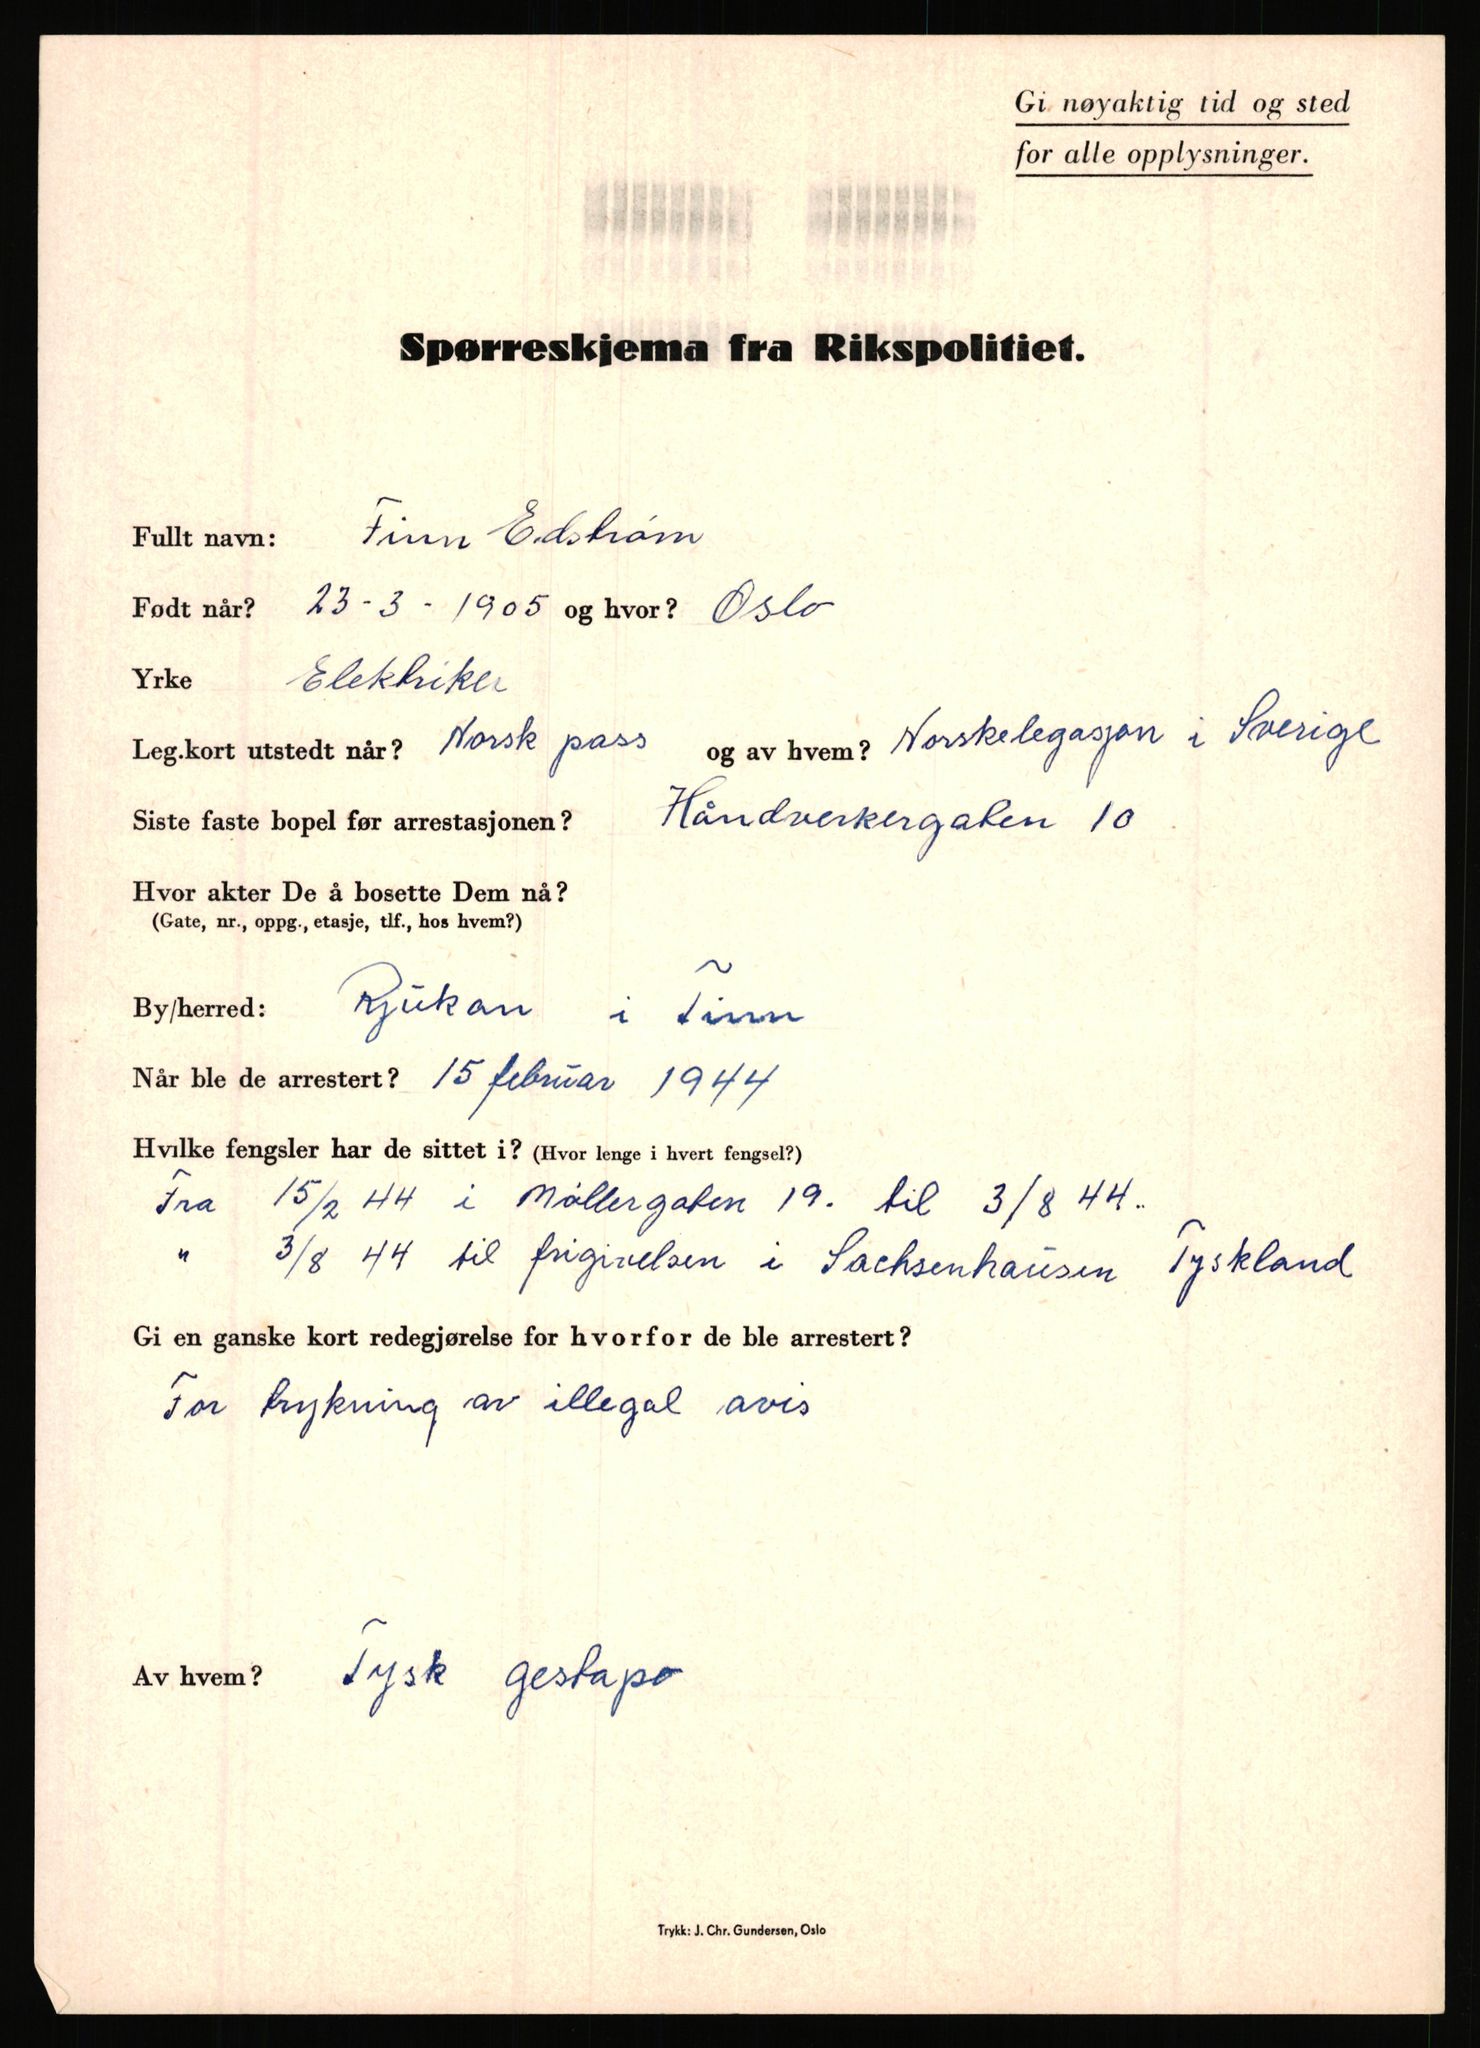 Gi nøyaktig tid og sted
for alle opplysninger.
Spørreskjema fra Rikspolitiet.
Fullt navn: Finn Edstrøm
Født når? 23-3-1905 og hvor? Oslo
Yrke Elektriker
Leg.kort utstedt når? Norsk pass og av hvem? Norskelegasjon i Sverige
Siste faste bopel før arrestasjonen? Håndverkergaten 10
Hvor akter De å bosette Dem nå?
(Gate, nr., oppg., etasje, tlf., hos hvem?)
By/herred: Rjukan i Tinn
Når ble de arrestert? 15 februar 1944
Hvilke fengsler har de sittet i? (Hvor lenge i hvert fengsel?)
Fra 15/2 44 i Møllergaten 19. til 3/8 44..
" 3/8 44 til frigivelsen i Sachsenhausen Tyskland
Gi en ganske kort redegjørelse for hvorfor de ble arrestert?
For trykning av illegal avis
Av hvem? Tysk gestapo
Trykk: J. Chr. Gundersen, Oslo